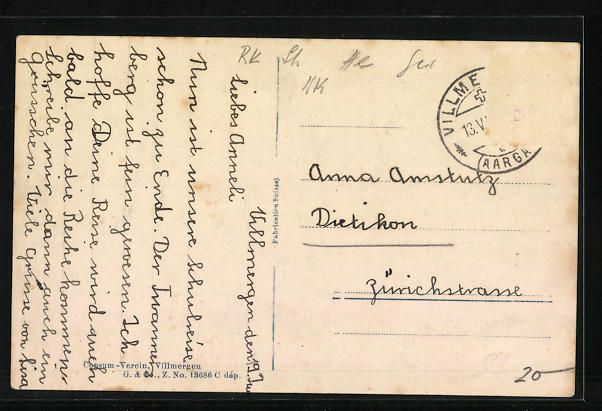 Villmergen den 9. Ju
Liebes Anneli
Nun ist unsere Schulreise
schon zu Ende. Der
berg ist fein gewesen. Ich
hoffe Deine Reise wird auch
bald an die Reihe kommen.
Schreibe mir dann auch ein
Grüsschen. Viele Grüsse von
Anna Amstutz
Dietikon
Zürichstrasse
VILLME
13.V
(AARGA
Fabrication Suisse)
Consum-Verein, Villmergen
G. & Co., Z. No. 13686 C dép.
RK
HK
20-